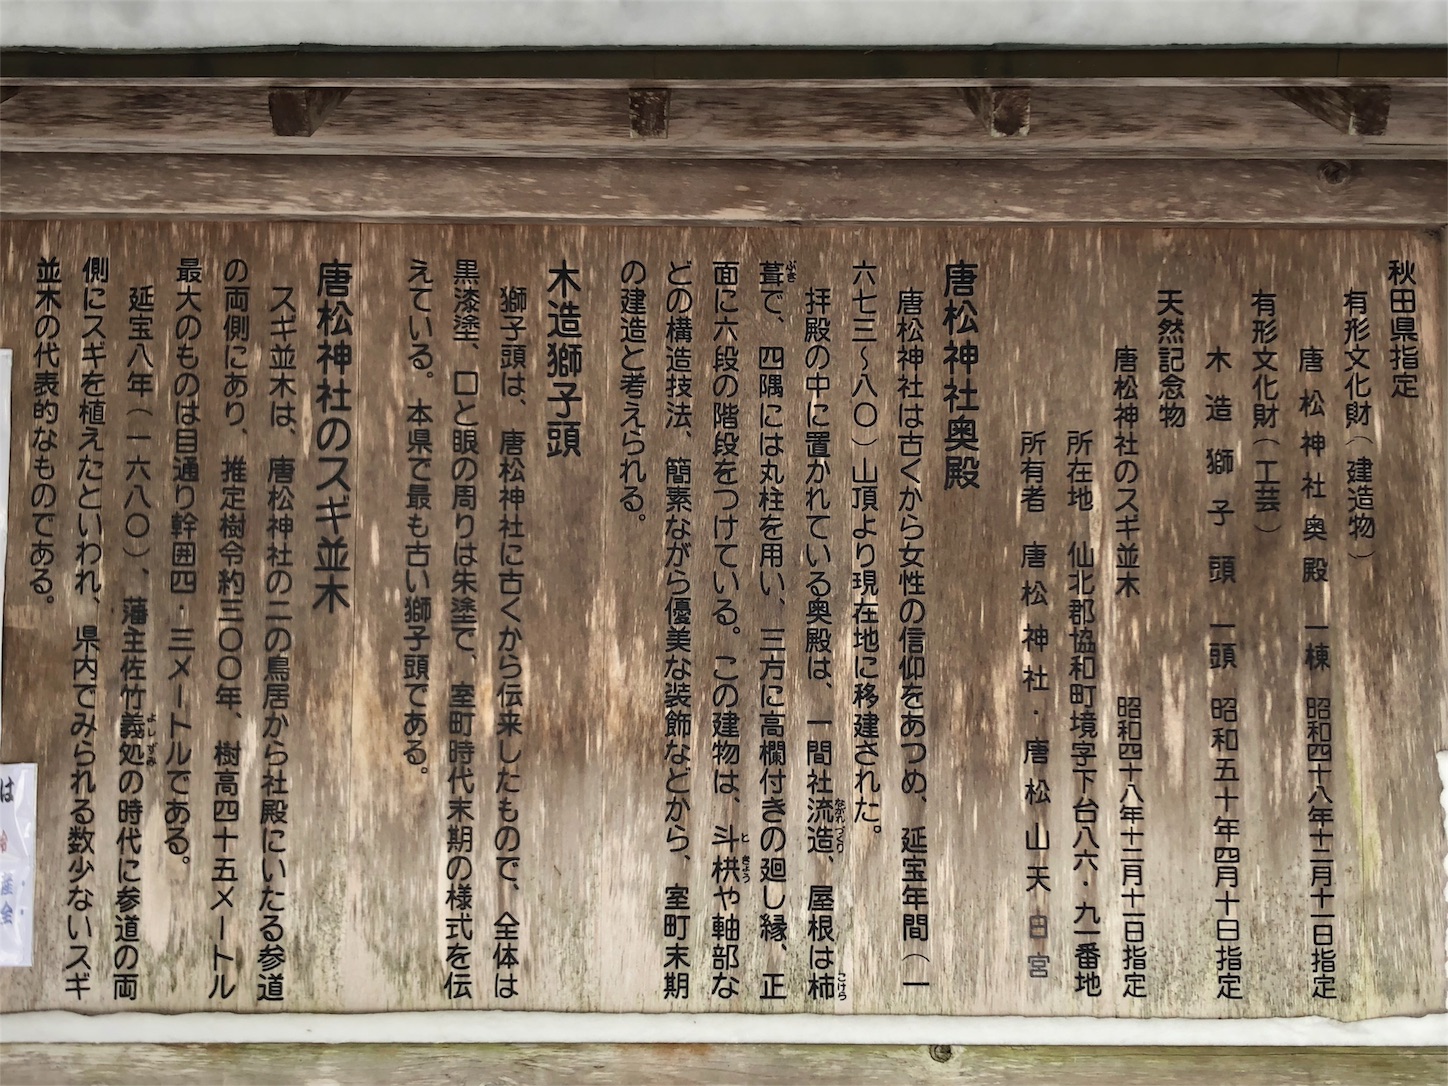 秋田県指定
有形文化財（建造物）
唐松神社奥殿　一棟　昭和四十八年十二月十一日指定
有形文化財（工芸）
木造獅子頭　一頭　昭和五十年四月十日指定
天然記念物
唐松神社のスギ並木　昭和四十八年十二月十一日指定
所在地　仙北郡協和町境字下台八六・九一番地
所有者　唐松神社・唐松山天日宮
唐松神社奥殿
唐松神社は古くから女性の信仰をあつめ、延宝年間（一
六七三～八〇）山頂より現在地に移建された。
拝殿の中に置かれている奥殿は、一間社流造、屋根は柿
ながれづくり
こけら
葺で、四隅には丸柱を用い、三方に高欄付きの廻し縁、正
ぶき
面に六段の階段をつけている。この建物は、斗栱や軸部な
と きょう
どの構造技法、簡素ながら優美な装飾などから、室町末期
の建造と考えられる。
木造獅子頭
獅子頭は、唐松神社に古くから伝来したもので、全体は
黒漆塗、口と眼の周りは朱塗で、室町時代末期の様式を伝
えている。本県で最も古い獅子頭である。
唐松神社のスギ並木
スギ並木は、唐松神社の二の鳥居から社殿にいたる参道
の両側にあり、推定樹令約三〇〇年、樹高四十五メートル
最大のものは目通り幹囲四・三メートルである。
延宝八年（一六八〇）、藩主佐竹義処の時代に参道の両
よしずみ
側にスギを植えたといわれ、県内でみられる数少ないスギ
並木の代表的なものである。
は